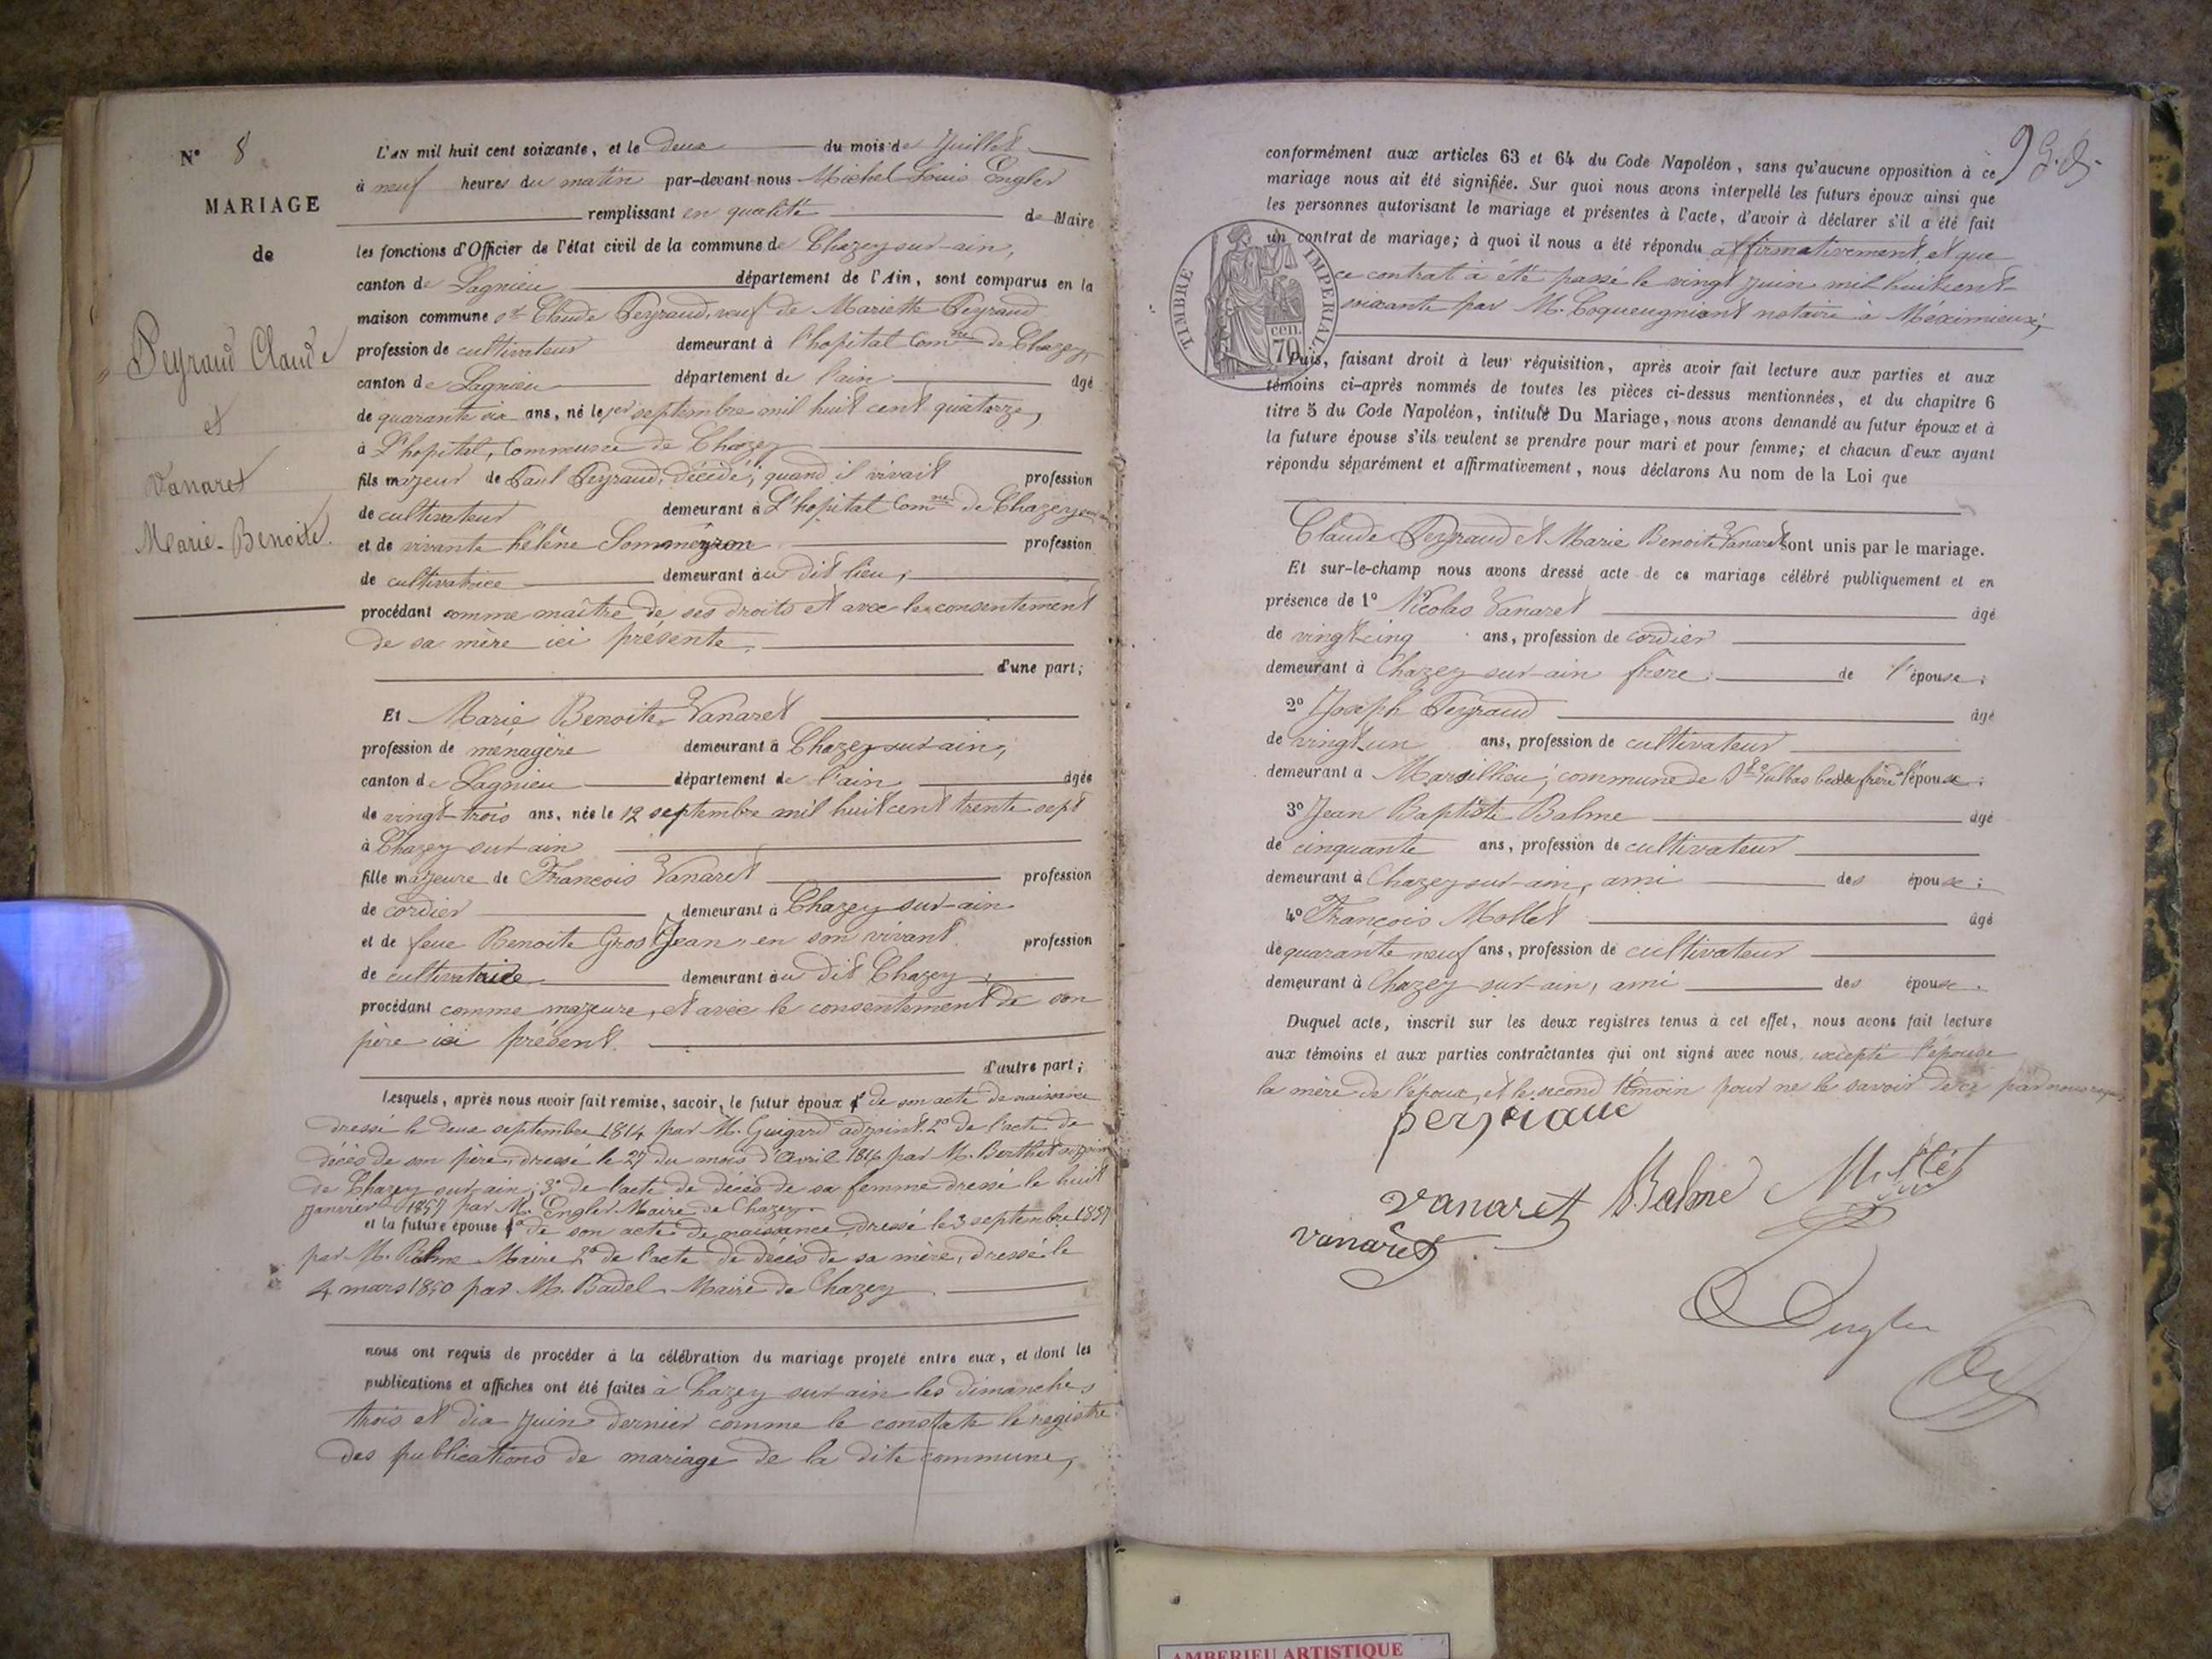 N° 8
MARIAGE
de
Peyraud Claude
et
Vanaret
Marie-Benoite.
L'AN mil huit cent soixante, et le deux du mois de Juillet
à neuf heures du matin par-devant nous Michel Louis Engler
remplissant en qualité de Maire
les fonctions d'Officier de l'état civil de la commune de Chazey sur-ain,
canton de Lagnieu département de l'Ain, sont comparus en la
maison commune Claude Peyraud, veuf de Mariette Peyraud
profession de cultivateur demeurant à l'hopital Comne de Chazey
canton de Lagnieu département de l'ain âgé
de quarante six ans, né le 1er septembre mil huit cent quatorze,
à L'hopital, Commune de Chazey
fils majeur de Paul Peyraud, décédé; quand il vivait profession
de cultivateur demeurant à L'hopital Comne de Chazey
et de vivante hélène Sommeyron profession
de cultivatrice demeurant au dit lieu;
procédant comme maître de ses droits et avec le consentement
de sa mère ici présente.
d'une part;
Et Marie Benoite Vanaret
profession de ménagère demeurant à Chazey sur ain,
canton de Lagnieu département de l'ain âgée
de vingt-trois ans, née le 12 septembre mil huit cent trente-sept
à Chazey sur-ain
fille majeure de François Vanaret profession
de cordier demeurant à Chazey sur-ain
et de feue Benoite Gros Jean, en son vivant profession
de cultivatrice demeurant au dit Chazey;
procédant comme majeure, et avec le consentement de son
père ici présent.
d'autre part;
Lesquels, après nous avoir fait remise, savoir, le futur époux 1° de son acte de naissance
dressé le deux septembre 1814 par M. Guigard adjoint. 2° de l'acte de
décès de son père, dressé le 27 du mois d'Avril 1816 par M. Berthet adjoint
de Chazey sur-ain; 3° de l'acte de décès de sa femme dressé le huit
janvier 1857 par M. Engler Maire de Chazey
et la future épouse 1° de son acte de naissance, dressé le 3 septembre 1837
par M. Balme Maire 2° de l'acte de décès de sa mère, dressé le
4 mars 1850 par M. Badel Maire de Chazey
nous ont requis de procéder à la célébration du mariage projeté entre eux, et dont les
publications et affiches ont été faites à Chazey sur ain les dimanches
trois et dix Juin dernier comme le constate le registre
des publications de mariage de la dite commune,
9
conformément aux articles 63 et 64 du Code Napoléon, sans qu'aucune opposition à ce
mariage nous ait été signifiée. Sur quoi nous avons interpellé les futurs époux ainsi que
les personnes autorisant le mariage et présentes à l'acte, d'avoir à déclarer s'il a été fait
un contrat de mariage; à quoi il nous a été répondu affirmativement et que
ce contrat à été passé le vingt Juin mil huit cent-
soixante par M. Coqueugniant notaire à Méximieux;
TIMBRE IMPERIAL
70 cen.
Puis, faisant droit à leur réquisition, après avoir fait lecture aux parties et aux
témoins ci-après nommés de toutes les pièces ci-dessus mentionnées, et du chapitre 6
titre 5 du Code Napoléon, intitulé Du Mariage, nous avons demandé au futur époux et à
la future épouse s'ils veulent se prendre pour mari et pour femme; et chacun d'eux ayant
répondu séparément et affirmativement, nous déclarons Au nom de la Loi que
Claude Peyraud et Marie Benoite Vanaret sont unis par le mariage.
Et sur-le-champ nous avons dressé acte de ce mariage célébré publiquement et en
présence de 1° Nicolas Vanaret âgé
de vingt-cinq ans, profession de cordier
demeurant à Chazey sur-ain frère de l'épouse;
2° Joseph Peyraud âgé
de vingt-un ans, profession de cultivateur
demeurant à Marsillieu; commune de St Vulbas beau frère de l'épouse;
3° Jean Baptiste Balme âgé
de cinquante ans, profession de cultivateur
demeurant à Chazey sur-ain, ami des époux;
4° François Mollet âgé
de quarante neuf ans, profession de cultivateur
demeurant à Chazey sur-ain, ami des époux.
Duquel acte, inscrit sur les deux registres tenus à cet effet, nous avons fait lecture
aux témoins et aux parties contractantes qui ont signé avec nous, excepté l'épouse
la mère de l'époux, et le second témoin pour ne le savoir de ce par nous requis
Vanaret Balme Mollet
vanaret
Engler
AMBERIEU ARTISTIQUE